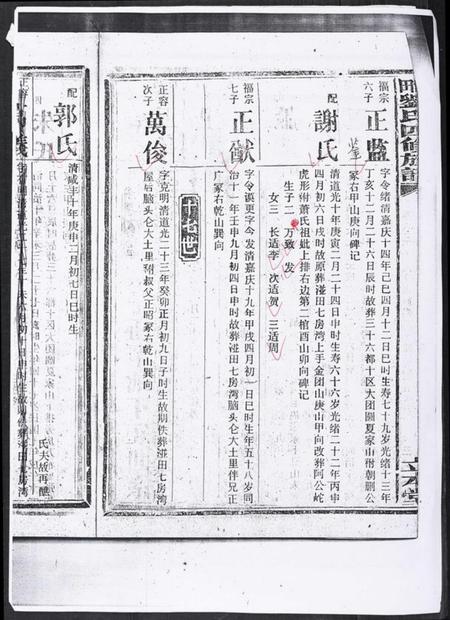 劉氏四修族譜
福宗
六子
正監
字令绪清嘉庆十四年己巳四月十二日巳时生寿七十九岁光绪十三年
丁亥十二月二十六日辰时故葬三十六都十区大团圞夏家山附朝鹏公
冢右甲山庚向碑记
配
謝氏
清道光十年庚寅二月二十四日申时生寿六十六岁光绪二十二年丙申
四月初六日戌时故原葬湴田七房湾上手金团山庚山甲向改葬阿公屺
虎形附萧氏祖妣上排右边第二棺酉山卯向碑记
生子二 万致 发
女三 长适李 次适贺 三适周
福宗
七子
正猷
字令谟更字今发清嘉庆十九年甲戌四月初一日巳时生年五十八岁同
治十一年壬申九月初四日申时故葬湴田七房湾脑头仑大土里伴兄正
广冢右乾山巽向
十七世
正容
次子
萬俊
字克明清道光二十三年癸卯正月初九日子时生故期佚葬湴田七房湾
屋后脑头仑大土里附叔父正昭冢右乾山巽向
配
郭氏
清咸丰十年庚申二月初七日巳时生
氏夫故再醮
正容